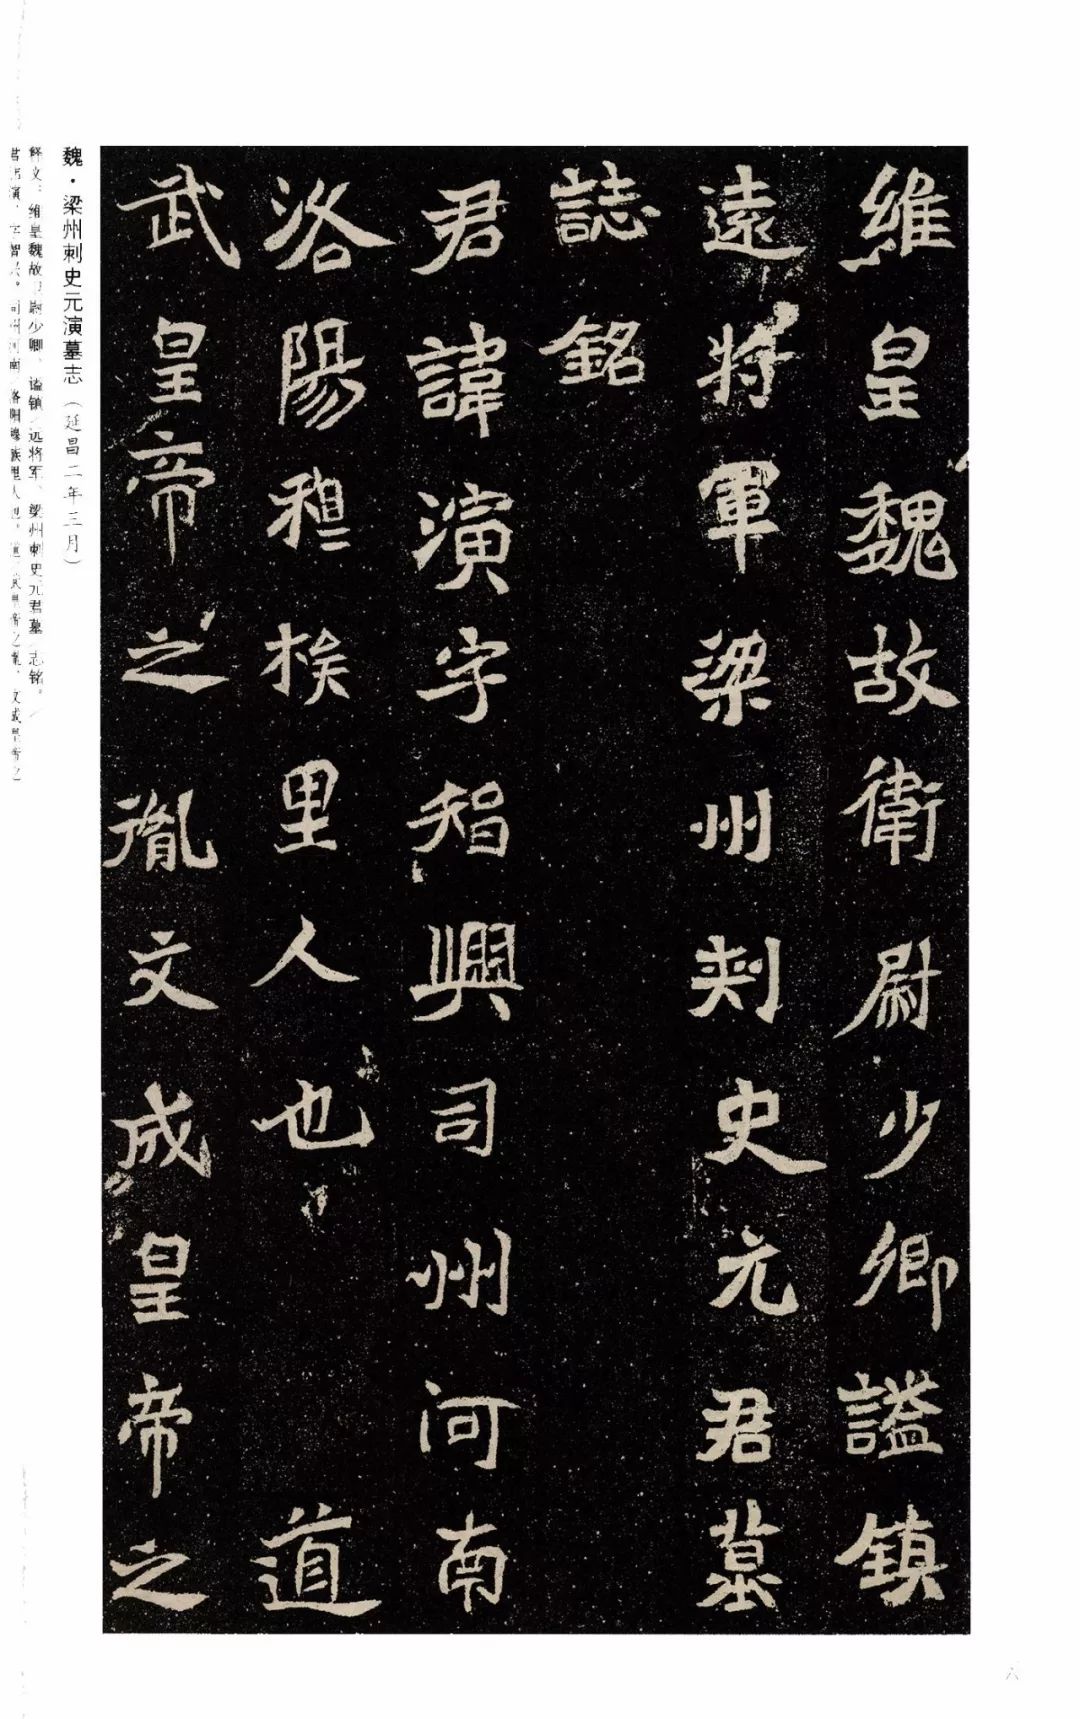 維皇魏故衛尉少卿謚鎮
遠將軍梁州刾史元君墓
誌銘
君諱演字智興司州河南
洛陽穆族里人也 道
武皇帝之胤文成皇帝之
魏·梁州刺史元演墓志（延昌二年三月）
释文：维皇魏故卫尉少卿、谥镇／远将军、梁州刺史元君墓／志铭。／
君讳演，字智兴。司州河南／洛阳穆族里人也。道／武皇帝之胤，文成皇帝之
六